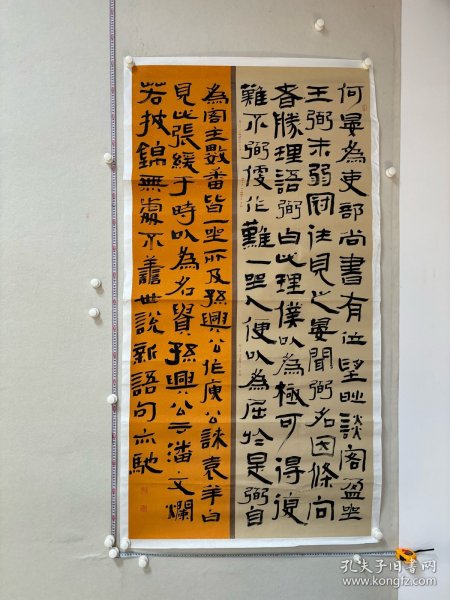 何晏為吏部尚書有位望時談客盈坐
王弼未弱冠往見之晏聞弼名因條向
者勝理語弼曰此理僕以為極可得復
難不弼便作難一坐人便以為屈於是弼自
為客主數番皆一坐所及孫興公作庾公誄袁羊曰
見此張緩于時以為名賞孫興公云潘文爛
若披錦無處不善世說新語句
孔夫子旧书网
www.kongfz.com